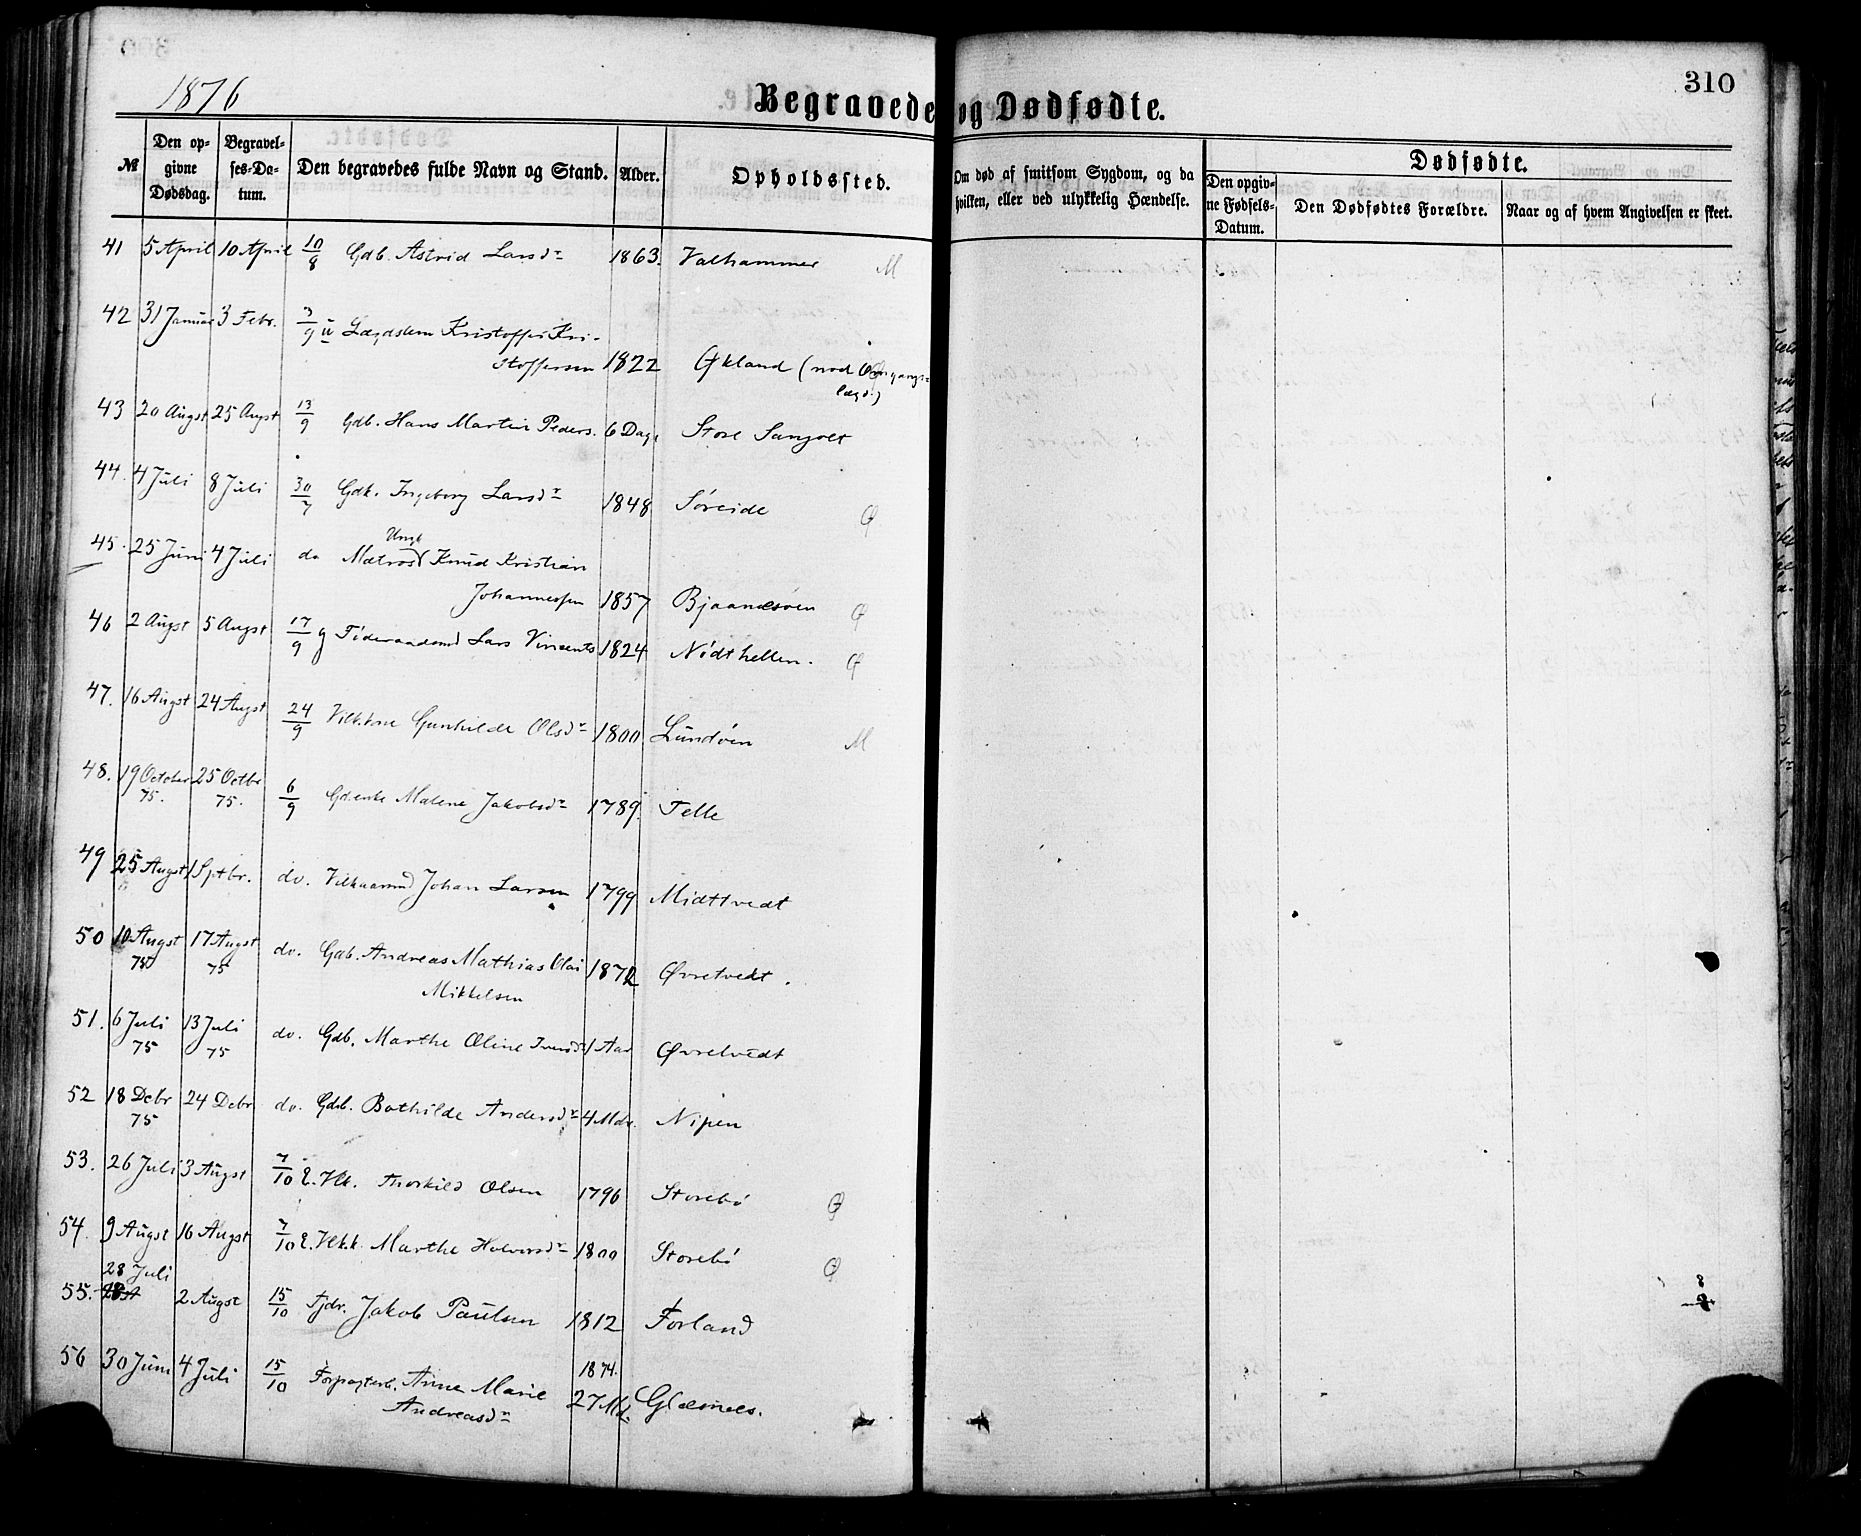 1876
Begravede og Dødfødte.
310
№
Den opgivne Dødsdag.
Begravelses-Datum.
Den begravedes fulde Navn og Stand.
Alder.
Opholdssted.
Om død af smitsom Sygdom, og da hvilken, eller ved ulykkelig Hændelse.
Dødfødte.
Den opgivne Fødsels-Datum.
Den Dødfødtes Forældre.
Naar og af hvem Angivelsen er skeet.
41 5 April 10 April 10/8 Gdb. Astrid Larsdr 1863. Valhammer M
42 31 Januar 3 Febr. 3/9 u Lægdslem Kristoffer Kri-
stoffersen 1822 Økland (nod Omgangs-
lægd)
43 20 Augst 25 Augst 13/9 Gdb. Hans Martin Peders. 6 Dage Store Sangolt
44. 4 Juli 8 Juli 30/7 Gdk. Ingeborg Larsdr 1848 Søreide Ø
Ungk
45. 25 Juni 4 Juli do Matros Knud Kristian
Johannessen 1857 Bjaanesøen Ø
46 2 Augst 5 Augst 17/9 g Føderaadsmd Lars Vincents 1824 Nødthellen. Ø
47. 16 Augst 24 Augst 24/9 Vilk.kone Gunhilde Olsdr 1800 Lundøen M
48. 19 October 25 Octbr 6/9 Gdenke Malene Jakobsdr 1789. Telle
75. 75.
49 25 Augst 1 Sptbr. do. Vilkaarsmd Johan Larsen 1799 Midttvedt
50 10 Augst 17 Augst do. Gdb. Andreas Mathias Olai 1872 Øvretvedt.
75 75 Mikkelsen
51. 6 Juli 13 Juli do. Gdb. Marthe Oline Iversdr 1 Aar Øvretvedt
75 75
52 18 Debr 24 Debr do. Gdb. Bothilde Andersdr 4 Mdr. Nipen
75
53. 26 Juli 3 Augst 7/10 E. Vlk. Thorkild Olsen 1796 Storebø Ø
54. 9 Augst 16 Augst 7/10 E. Vlk.k. Marthe Halvorsdr 1800 Storebø Ø
28 Juli
55. 2 Augst 15/10 Fjdr. Jakob Paulsen 1812 Forland
56 30 Juni 4 Juli 15/10 Forpagterb. Anne Marie 1874. 27 Md. Glesnes.
Andreasdr